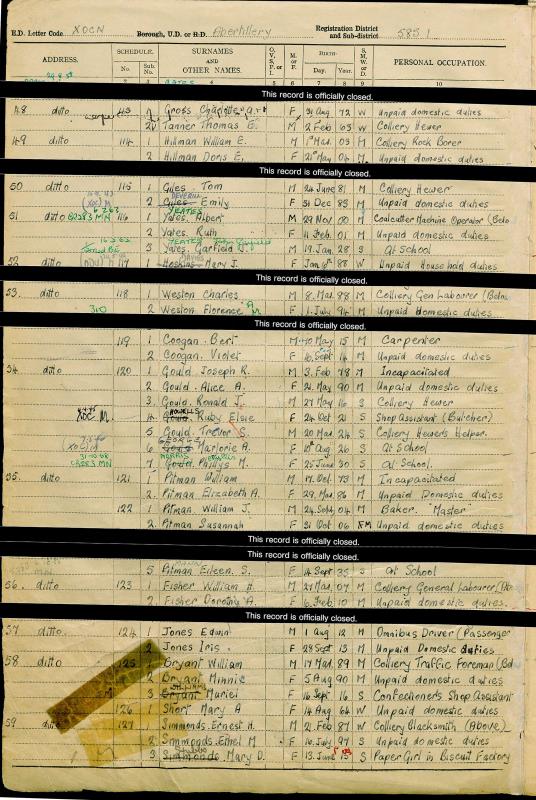 E.D. Letter Code XOCN Borough, U.D. or R.D. Abertillery Registration District and Sub-district 585 1
ADDRESS. SCHEDULE. No. Sub. No. SURNAMES AND OTHER NAMES. O, V, S, P or I. M. or F. BIRTH— Day. Year. S. M. W. or D. PERSONAL OCCUPATION.
2 3 4 5 6 7 8 9 10
This record is officially closed.
48 ditto 113 1 Gross Charlotte F 31 Aug 72 W Unpaid domestic duties
2 Tanner Thomas E. M 2 Feb 03 W Colliery Hewer
49 ditto 114 1 Hillman William E. M 1st Mar. 03 M Colliery Rock Borer
2 Hillman Doris E. F 21st May 04 M. Unpaid domestic duties
This record is officially closed.
50 ditto 115 1 Giles Tom M 24 June 81 M Colliery Hewer
DEVERILL
2 Giles Emily F 31 Dec 83 M Unpaid domestic duties
YEATES
51 ditto 116 1 Yates. Albert M 29 Nov 00 M Coalcutter Machine Operator (Belo
2 Yates. Ruth F 11 Feb. 01 M Unpaid domestic duties
YEATES
3 Yates. Garfield J. M 19 Jan. 28 S At School
DAVIES
52 ditto 117 1 Hoskins Mary J. F Jan 6th 88 W Unpaid Household duties
This record is officially closed.
53. ditto 118 1 Weston Charles. M 8 Mar. 88 M Colliery Gen Labourer (Below
310 2 Weston Florence M F 1. July 94 M Unpaid Domestic duties
This record is officially closed.
119 1 Coogan. Bert M 10 May 15 M Carpenter
2 Coogan. Violet F 16 Sept 14 M Unpaid domestic duties
54 ditto 120 1 Gould Joseph R. M 3 Feb 78 M Incapacitated
2 Gould. Alice A. F 21. May 90 M Unpaid domestic duties
3 Gould. Ronald J. M 27 May 16 S Colliery Hewer
HOWELLS
XOC M. 4 Gould. Ruby Elsie F 24 Oct 21 S Shop Assistant (Butcher)
5 Gould. Trevor S. M 20 Mar 24 S Colliery Hewers Helper.
GEORGE
6 Gould Marjorie A. F 10th Aug 26 S At School
MORRIS
7 Gould. Phillys M. F 25 June 30 S At School.
55. ditto 121 1 Pitman William M 17. Oct. 73 M Incapacitated
2. Pitman Elizabeth A. F 29. Mar. 86 M Unpaid Domestic duties
122 1 Pitman. William J. M 24. Sept. 04 M Baker. "Master"
2. Pitman Susannah F 31 Oct 06 M Unpaid domestic duties
This record is officially closed.
This record is officially closed.
5 Pitman Eileen. S. F 14 Sept 35 S At School
56. ditto 123 1 Fisher William H. M 27 Mar. 07 M Colliery General Labourer
2 Fisher Dorothy A F 6. Feb. 10 M Unpaid domestic duties.
This record is officially closed.
57 ditto. 124 1 Jones Edwin M 1 Aug 12 M Omnibus Driver (Passenger
2 Jones Iris. F 28 Sept 13 M Unpaid Domestic duties
58 ditto 125 1 Bryant William M 17 Mar. 89 M Colliery Traffic Foreman
2 Bryant Minnie F 5 Aug 90 M Unpaid domestic duties
3 Bryant Muriel F 16 Sept 16 S Confectioners Shop Assistant
126 1 Short Mary A F 14 Aug 64 W Unpaid domestic duties
59 ditto 127 1 Simmonds. Ernest H. M 21. Feb 87 W Colliery Blacksmith (Above)
2. Simmonds. Ethel M F 16. July 97 S Unpaid domestic duties
3 Simmonds. Mary D. F 13. June 15 S Paper Girl in Biscuit Factory